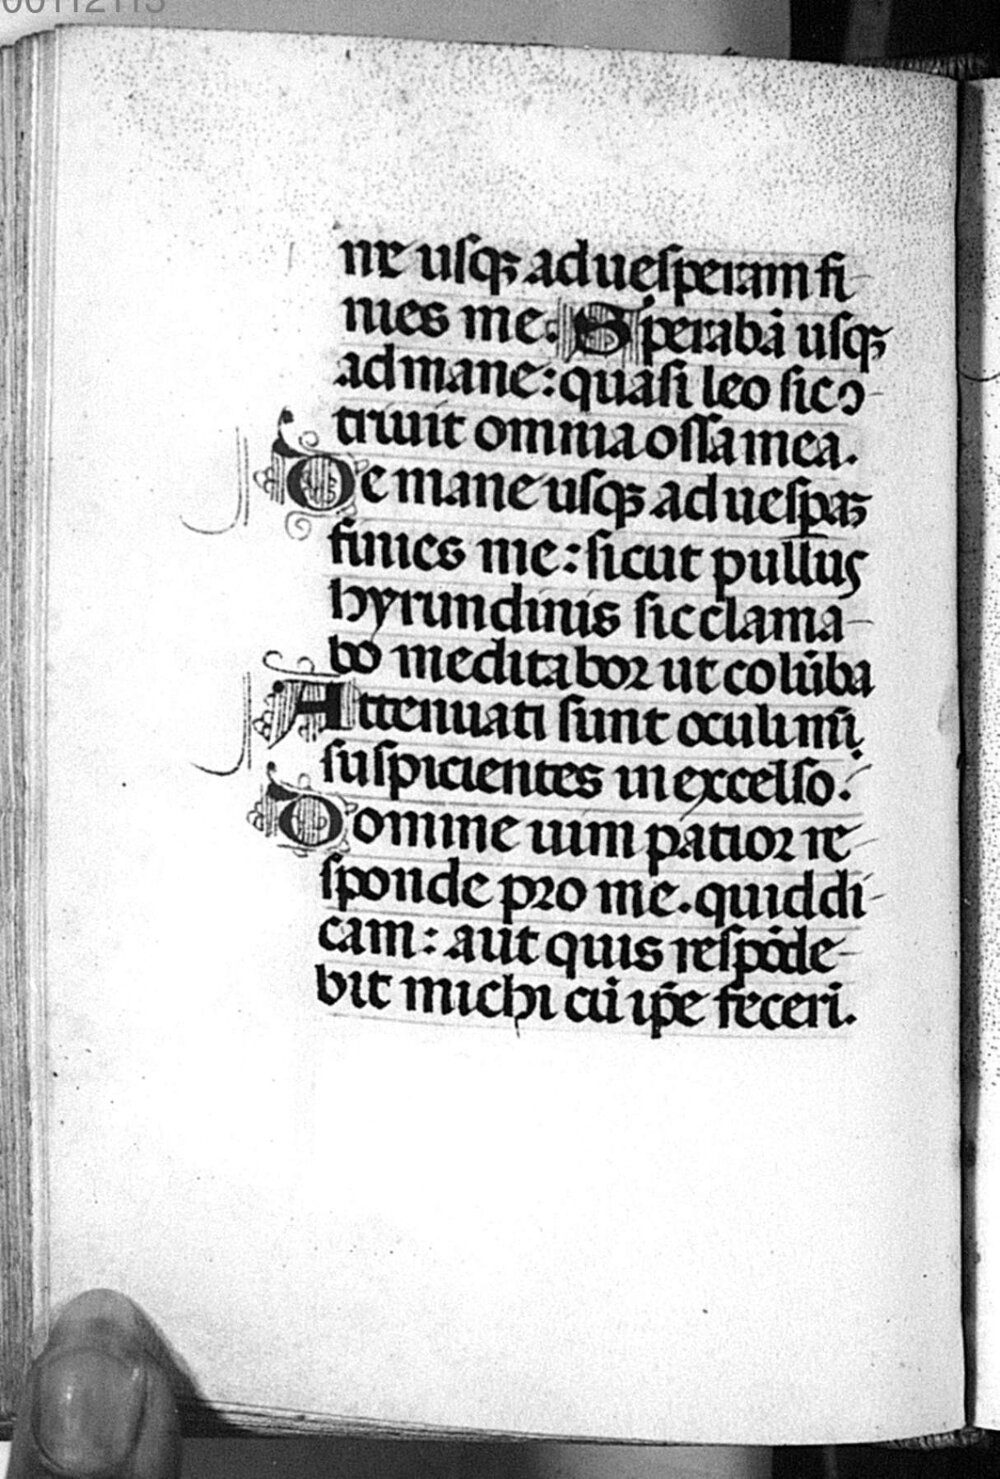 00112113
ne usqꝫ ad uesperam fi
nies me. Sperabā usqꝫ
ad mane: quasi leo sic ↄ
triuit omnia ossa mea.
De mane usqꝫ ad uesꝑaꝫ
finies me: sicut pullus
hyrundinis sic clama
bo meditabor ut colūba
Attenuati sunt oculi mī
suspicientes in excelso.
Domine uim patior re
sponde pro me. quid di
cam: aut quis respōde
bit michi cū ip̄e feceri.